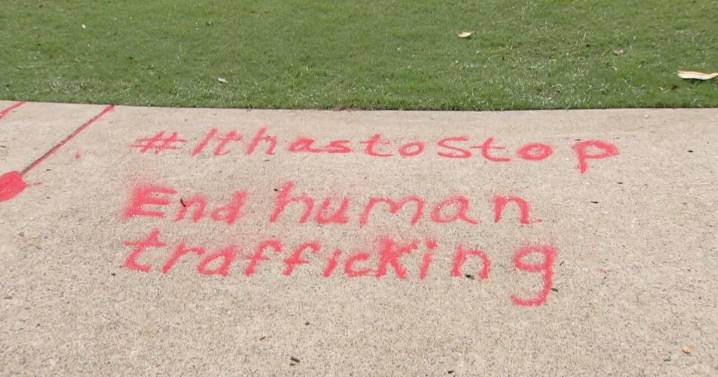 #IthastoStop
End human
trafficking